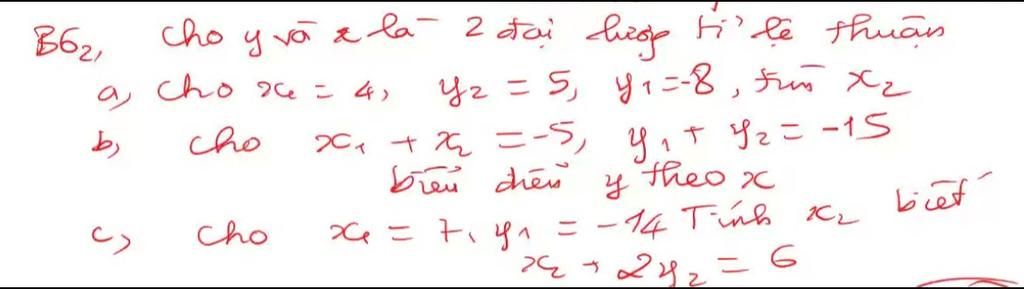 B62, Cho y và x là 2 đại lượng tỉ lệ thuận
a, Cho x1 = 4, y2 = 5, y1 = -8, tìm x2
b, Cho x1 + x2 = -5, y1 + y2 = -15
biểu diễn y theo x
c, Cho x1 = 7, y1 = -14 Tính x2 biết
x2 + 2y2 = 6